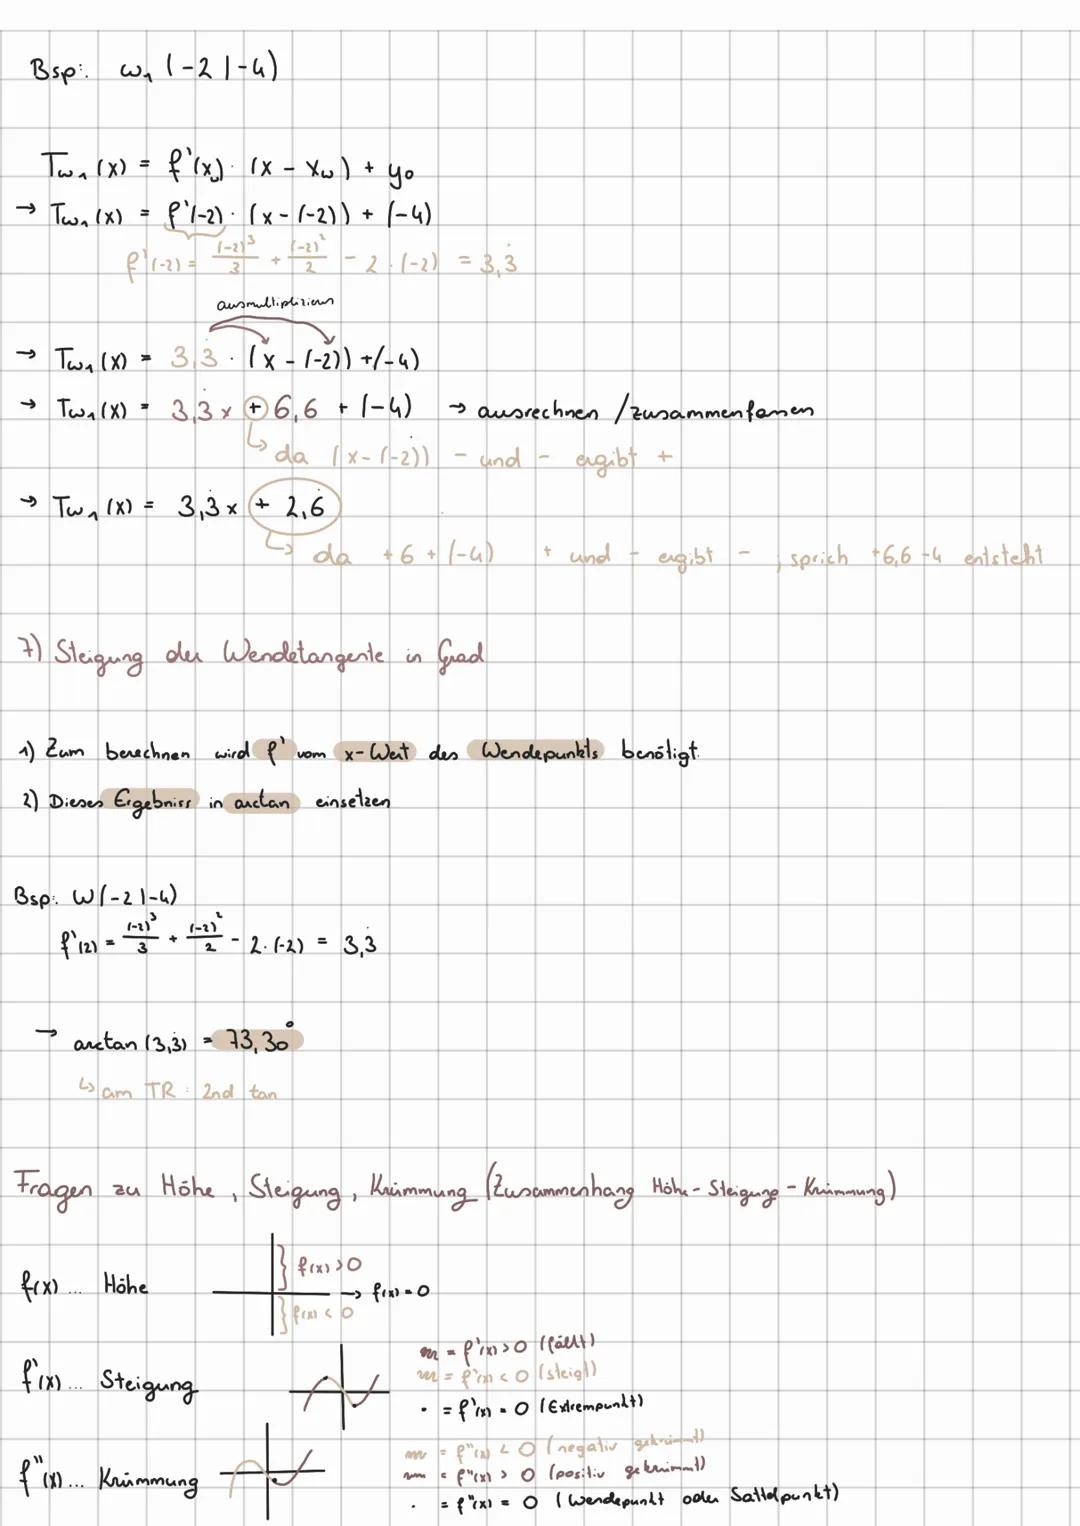 Bsp: W₁ (-2 | -4)
Tw₁ (x) = f'(x₀) · (x - xw) + y₀
→ Tw₁ (x) = f'(-2) · (x - (-2)) + (-4)
f'(-2) = (-2)³/3 + (-2)²/2 - 2 · (-2) = 3,3̇
ausmultiplizieren
→ Tw₁ (x) = 3,3̇ · (x - (-2)) + (-4)
→ Tw₁ (x) = 3,3̇ x + 6,6 + (-4) → ausrechnen / zusammenfassen
↳ da (x - (-2)) - und - ergibt +
→ Tw₁ (x) = 3,3̇ x + 2,6̇
↳ da + 6 + (-4) + und - ergibt - , sprich +6,6 -4 entsteht
7) Steigung der Wendetangente in Grad
1) Zum berechnen wird f' vom x-Wert des Wendepunkts benötigt.
2) Dieses Ergebniss in arctan einsetzen
Bsp: W (-2 | -4)
f'(2) = (-2)³/3 + (-2)²/2 - 2 · (-2) = 3,3̇
→ arctan (3,3̇) = 73,30°
↳ am TR : 2nd tan
Fragen zu Höhe , Steigung , Krümmung (Zusammenhang Höhe - Steigung - Krümmung)
} f(x) > 0
f(x) ... Höhe → f(x) = 0
} f(x) < 0
m = f'(x) > 0 (fällt)
f'(x) ... Steigung m = f'(x) < 0 (steigt)
· = f'(x) = 0 (Extrempunkt)
= f''(x) < 0 (negativ gekrümmt)
f''(x) ... Krümmung = f''(x) > 0 (positiv gekrümmt)
· = f''(x) = 0 (Wendepunkt oder Sattelpunkt)